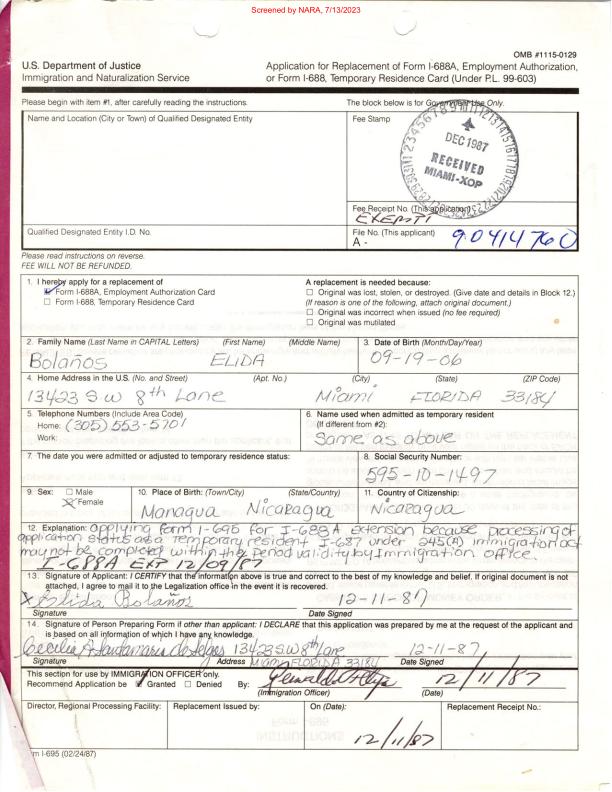 Screened by NARA, 7/13/2023
OMB #1115-0129
U.S. Department of Justice
Immigration and Naturalization Service
Application for Replacement of Form I-688A, Employment Authorization,
or Form I-688, Temporary Residence Card (Under P.L. 99-603)
Please begin with item #1, after carefully reading the instructions.
The block below is for Government Use Only.
Name and Location (City or Town) of Qualified Designated Entity
Fee Stamp
DEC 1987
RECEIVED
MIAMI-XOP
Fee Receipt No. (This application)
EXEMPT
Qualified Designated Entity I.D. No.
File No. (This applicant)
A - 90414760
Please read instructions on reverse.
FEE WILL NOT BE REFUNDED.
1. I hereby apply for a replacement of
Form I-688A, Employment Authorization Card
Form I-688, Temporary Residence Card
A replacement is needed because:
Original was lost, stolen, or destroyed. (Give date and details in Block 12.)
(If reason is one of the following, attach original document.)
Original was incorrect when issued (no fee required)
Original was mutilated
2. Family Name (Last Name in CAPITAL Letters) (First Name) (Middle Name)
Bolaños ELIDA
3. Date of Birth (Month/Day/Year)
09-19-06
4. Home Address in the U.S. (No. and Street) (Apt. No.) (City) (State) (ZIP Code)
13423 SW 8th Lane Miami FLORIDA 33184
5. Telephone Numbers (Include Area Code)
Home: (305) 553-5701
Work:
6. Name used when admitted as temporary resident
(If different from #2):
Same as above
7. The date you were admitted or adjusted to temporary residence status:
8. Social Security Number:
595-10-1497
9. Sex: Male
Female
10. Place of Birth: (Town/City) (State/Country)
Managua Nicaragua
11. Country of Citizenship:
Nicaragua
12. Explanation: applying form I-695 for I-688A extension because processing of
application status as a temporary resident I-687 under 245(A) immigration act
may not be completed within the period validity by Immigration office.
I-688A EXP 12/09/87
13. Signature of Applicant: I CERTIFY that the information above is true and correct to the best of my knowledge and belief. If original document is not
attached, I agree to mail it to the Legalization office in the event it is recovered.
X Elida Bolaños 12-11-87
Signature Date Signed
14. Signature of Person Preparing Form if other than applicant: I DECLARE that this application was prepared by me at the request of the applicant and
is based on all information of which I have any knowledge.
Cecilia A Santamaria de 13423 SW 8th Lane 12-11-87
Signature Address MIAMI FLORIDA 33184 Date Signed
This section for use by IMMIGRATION OFFICER only.
Recommend Application be Granted Denied By: 12/11/87
(Immigration Officer) (Date)
Director, Regional Processing Facility:
Replacement Issued by:
On (Date):
12/11/87
Replacement Receipt No.:
I-695 (02/24/87)